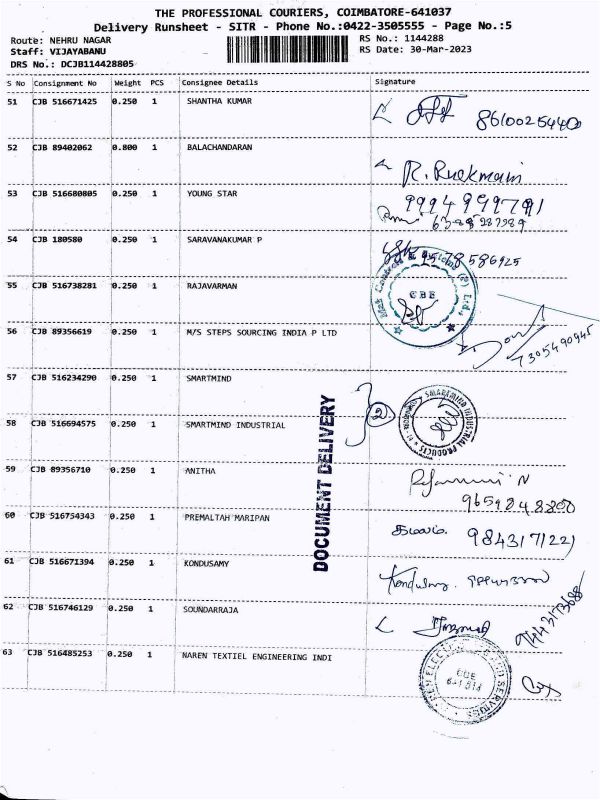 THE PROFESSIONAL COURIERS, COIMBATORE-641037
Delivery Runsheet - SITR - Phone No.:0422-3505555 - Page No.:5
Route: NEHRU NAGAR
RS No.: 1144288
Staff: VIJAYABANU
RS Date: 30-Mar-2023
DRS No.: DCJB114428805
S No Consignment No Weight PCS Consignee Details Signature
51 CJB 516671425 0.250 1 SHANTHA KUMAR
8610025440
52 CJB 89402062 0.800 1 BALACHANDARAN
R. Rukmani
9994999791
53 CJB 516680805 0.250 1 YOUNG STAR
54 CJB 180580 0.250 1 SARAVANAKUMAR P
9578586925
55 CJB 516738281 0.250 1 RAJAVARMAN
CBE
56 CJB 89356619 0.250 1 M/S STEPS SOURCING INDIA P LTD
7305490945
57 CJB 516234290 0.250 1 SMARTMIND
2
SMARTMIND INDUSTRIAL PRODUCTS
58 CJB 516694575 0.250 1 SMARTMIND INDUSTRIAL
DOCUMENT DELIVERY
59 CJB 89356710 0.250 1 ANITHA
9659848800
60 CJB 516754343 0.250 1 PREMALTAH MARIPAN
9843171221
61 CJB 516671394 0.250 1 KONDUSAMY
62 CJB 516746129 0.250 1 SOUNDARRAJA
9443173688
63 CJB 516485253 0.250 1 NAREN TEXTIEL ENGINEERING INDI